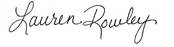 Lauren Rowley